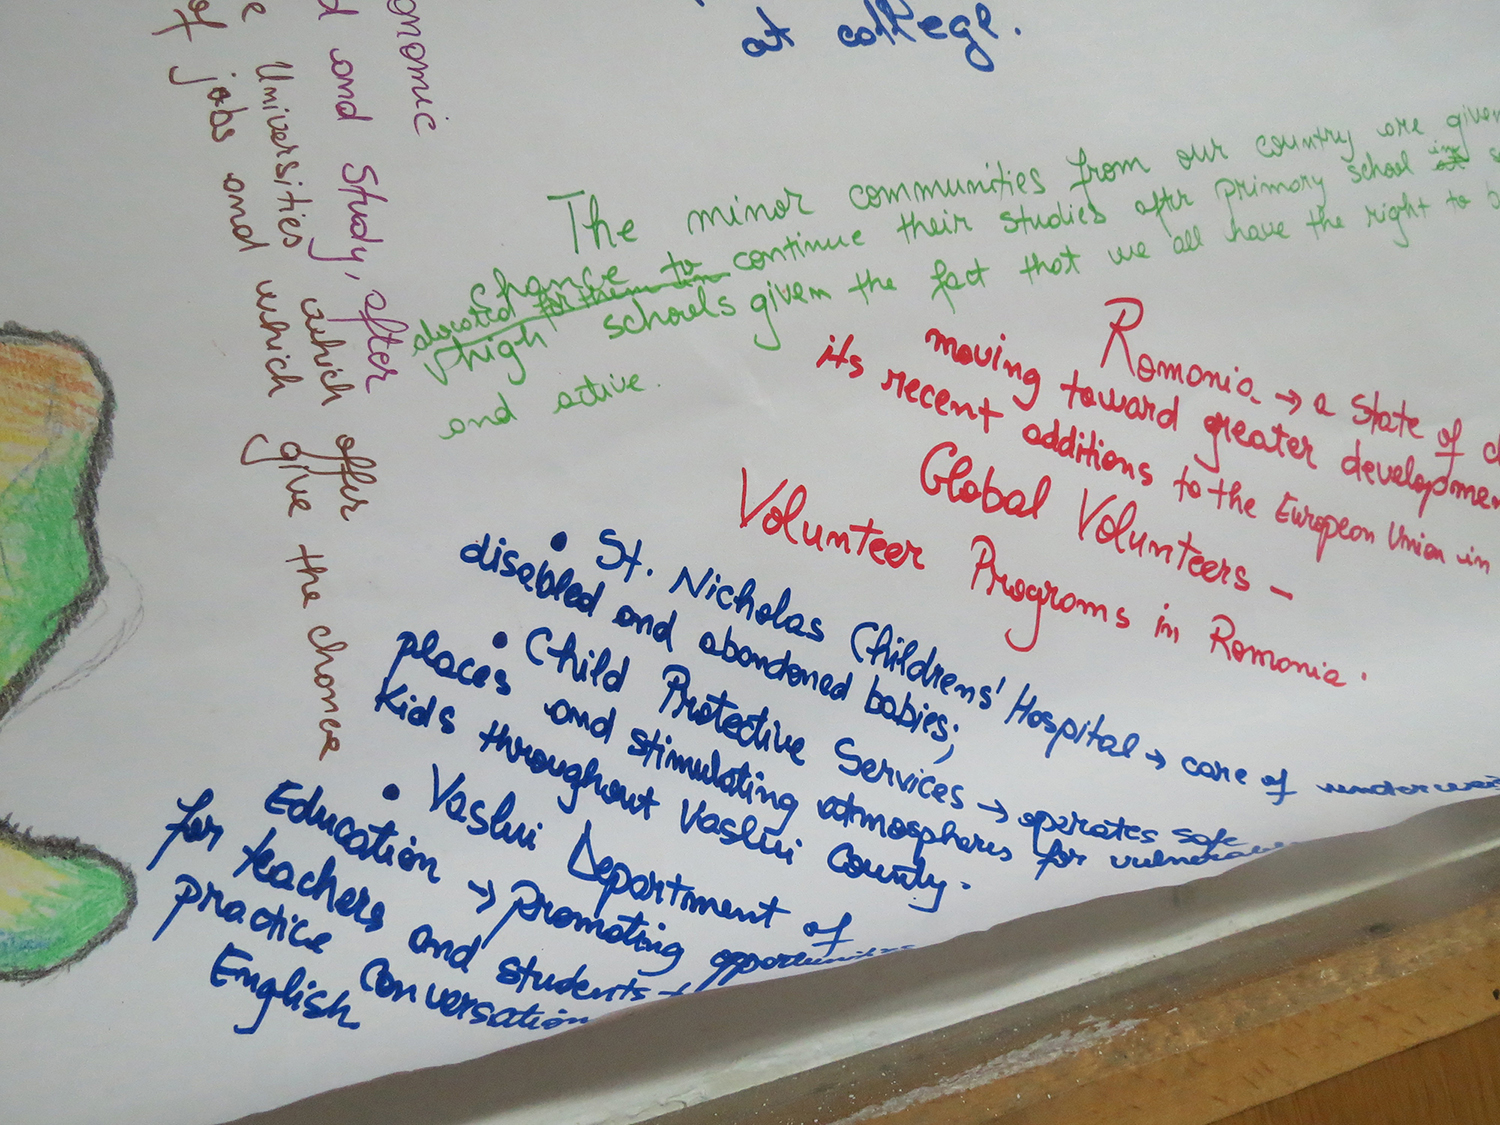 at college.
onomic
d and Study, after
Universities which offer
of jobs and which give the chance
The minor communities from our country are given
chance to continue their studies after primary school in
high schools given the fact that we all have the right to b
and active.
Romania → a State of
moving toward greater developmen
its recent additions to the European Union in
Global Volunteers –
Volunteer Programs in Romania.
• St. Nicholas Childrens' Hospital → care of underwei
disabled and abandoned babies;
• Child Protective Services → operates safe
places and stimulating atmospheres for vulnerable
Kids throughout Vaslui County.
• Vaslui Department of
Education → promoting opportunities
for teachers and students t
practice conversation
English